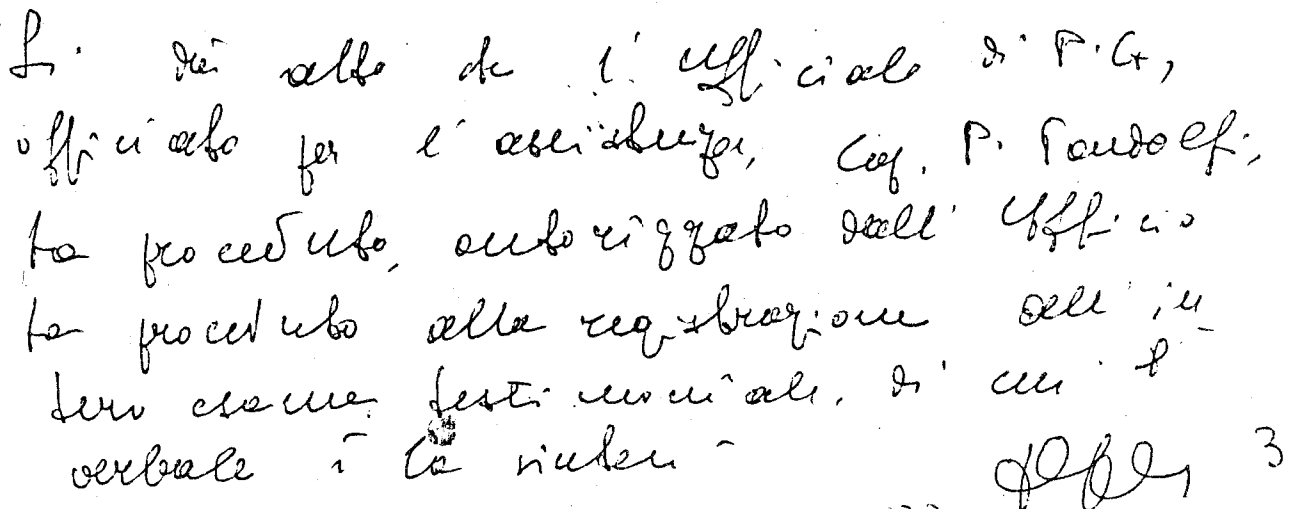 Si dà atto che l'Ufficiale di P.G.,
officiato per l'assistenza, Cap. P. Pandolfi,
ha proceduto, autorizzato dall'Ufficio
ha proceduto alla registrazione dell'in-
tero esame testimoniale, di cui il
verbale è la sintesi -
3